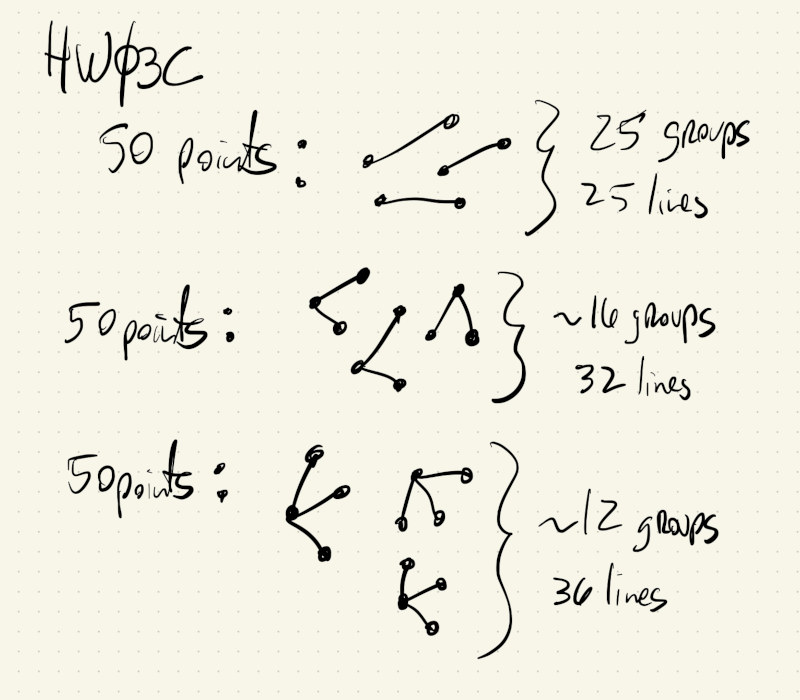 HWφ3C
50 points :
25 groups
25 lines
50 points :
~16 groups
32 lines
50 points :
~12 groups
36 lines